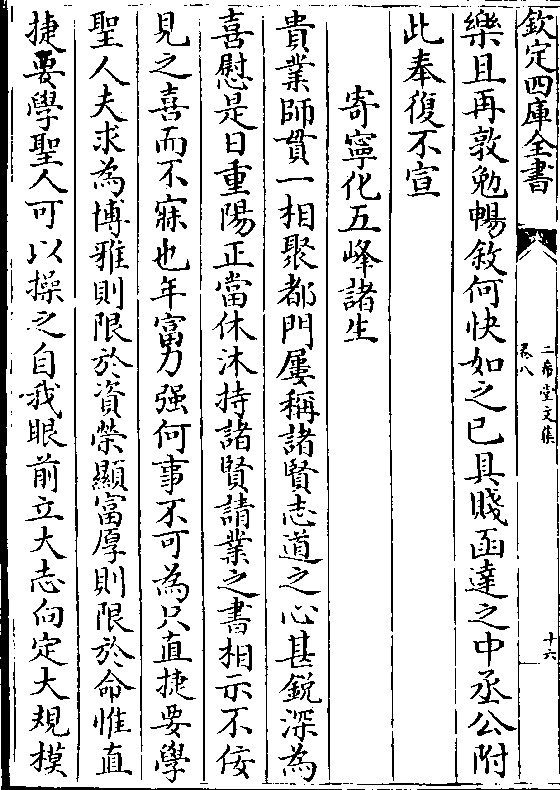 欽定四庫全書
二希堂文集
卷八
十六
樂且再敦勉暢敘何快如之已具賤函達之中丞公附
此奉復不宣
寄寧化五峰諸生
貴業師貫一相聚都門屢稱諸賢志道之心甚銳深為
喜慰是日重陽正當休沐持諸賢請業之書相示不佞
見之喜而不寐也年富力强何事不可為只直捷要學
聖人夫求為博雅則限於資榮顯富厚則限於命惟直
捷要學聖人可以操之自我眼前立大志向定大規模